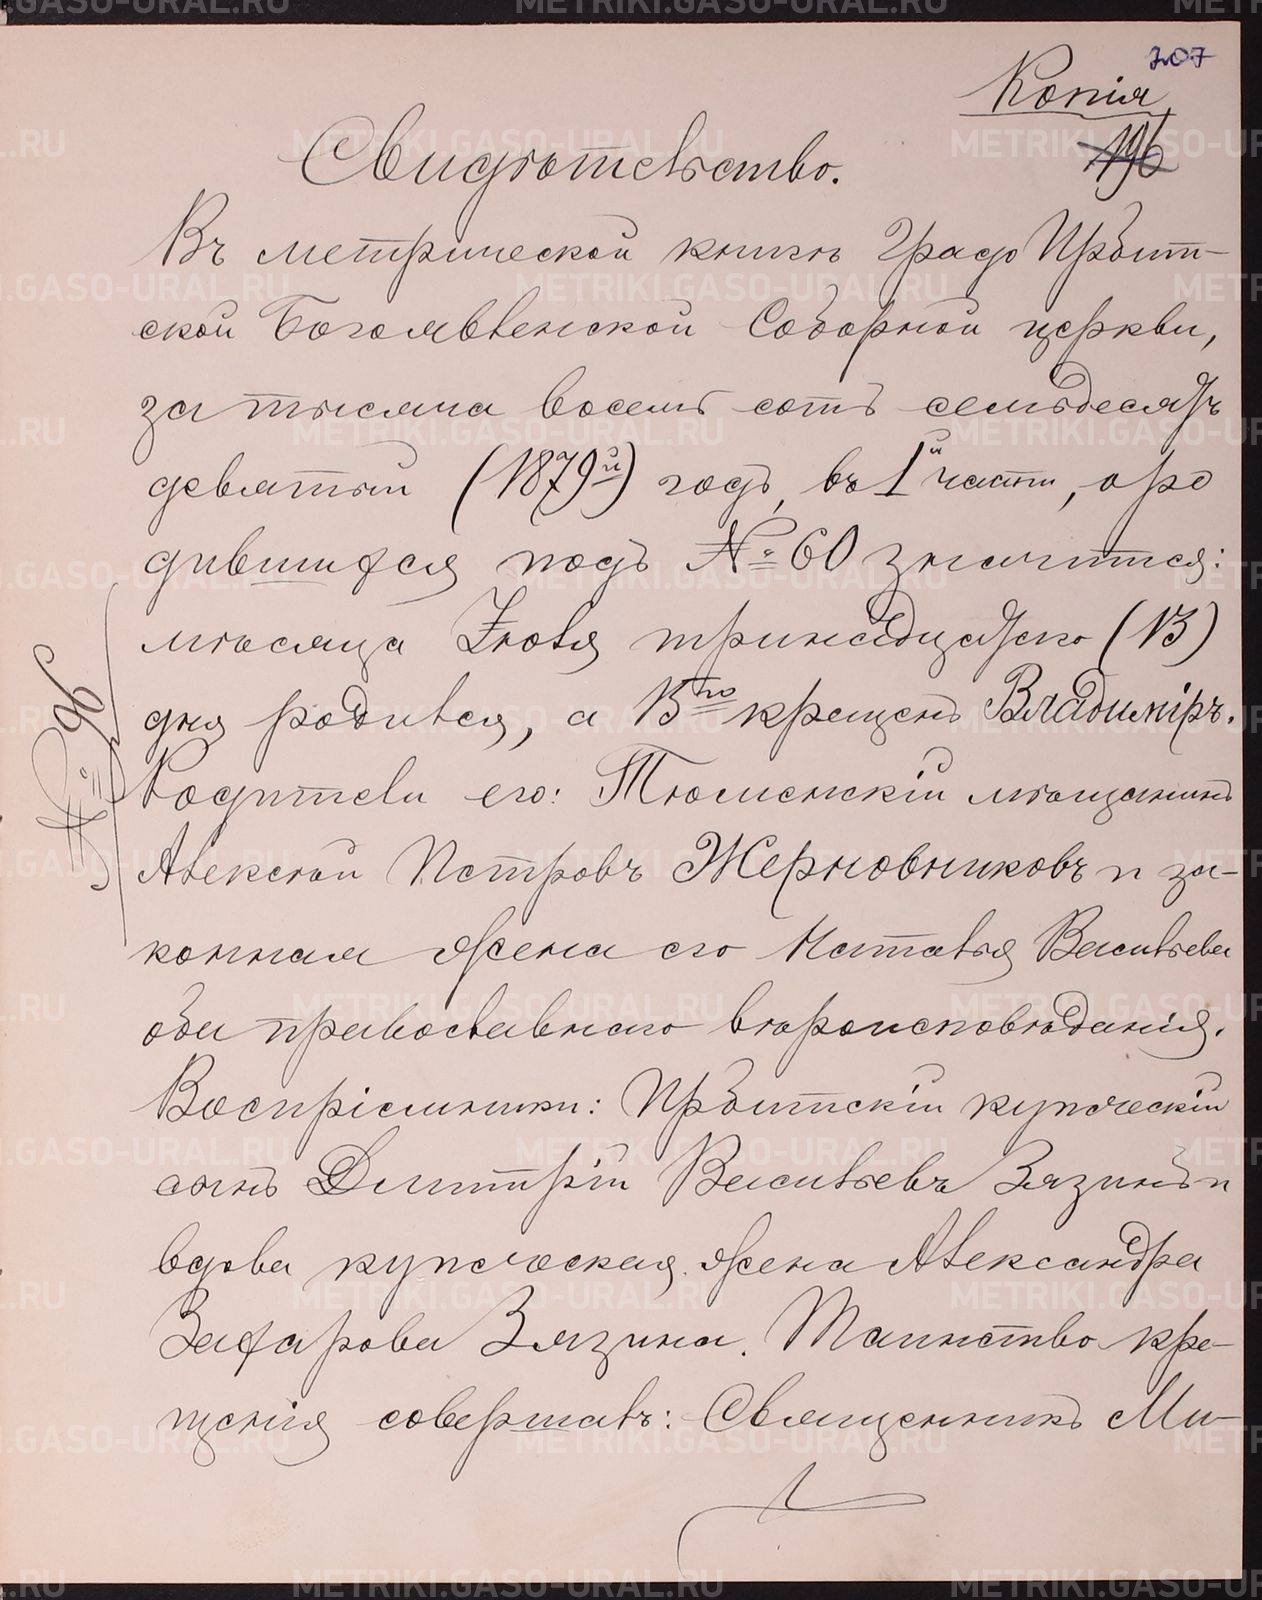 207
Копія
196
Свидѣтельство.
Въ метрической книгѣ Градо Ирбит-
ской Богоявленской Соборной церкви,
за тысяча восемь сотъ семьдесятъ
девятый (1879й) годъ, въ 1й части, о ро
дившихся подъ № 60 значится:
мѣсяца Іюля тринадцатаго (13)
дня родился, а 15го крещенъ Владиміръ.
Родители его: Тюменскій мѣщанинъ
Алексѣй Петровъ Жерновниковъ и за-
конная жена его Наталья Васильева
оба православнаго вѣроисповѣданія.
Воспріемники: Ирбитскій купеческій
сынъ Димитрій Васильевъ Зязинъ и
вдова купеческая жена Александра
Захарова Зязина. Таинство кре-
щенія совершалъ: Священникъ Ми-
№ 96
METRIKI.GASO-URAL.RU